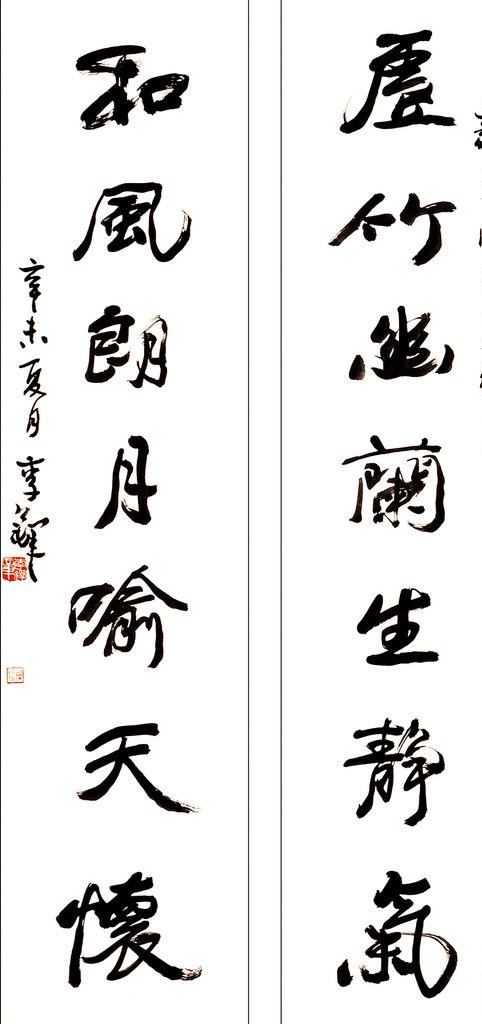 虚竹幽蘭生静氣
和風朗月喻天懷
辛未夏月李鐸